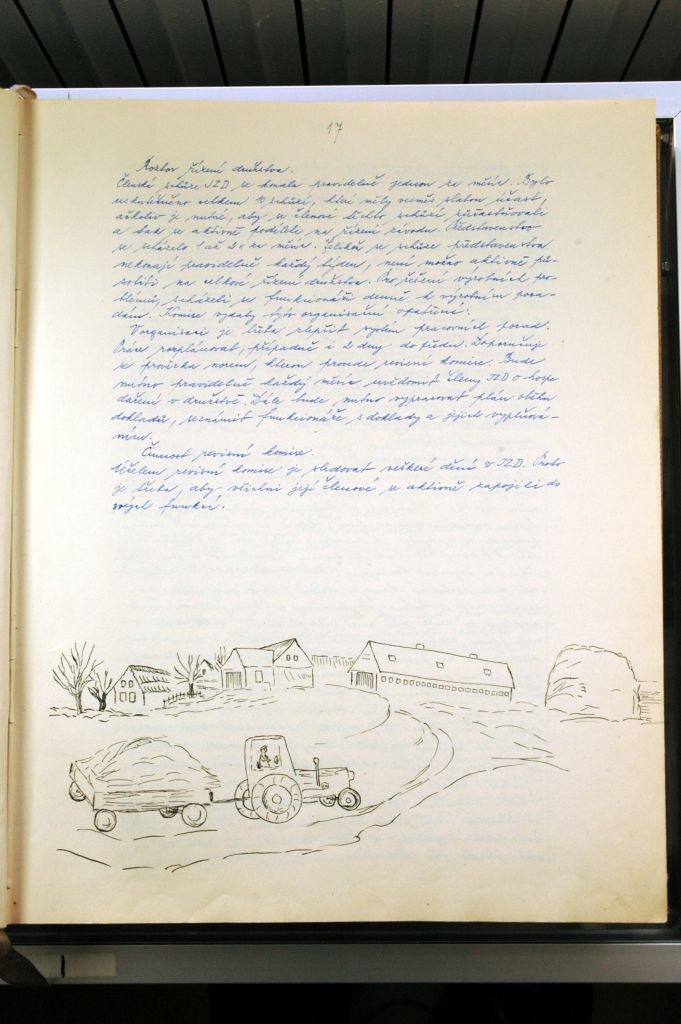 17
Rozbor řízení družstva.
Členské schůze JZD se konala pravidelně jednou za měsíc. Bylo
uskutečněno celkem schůzí, které měly vesměs slabou účast,
ačkoliv je nutné, aby se členové těchto schůzí zúčastňovali
a tak se aktivně podíleli na řízení závodu. Představenstvo
se scházelo 1 až 2 x za měsíc. Jelikož se schůze představenstva
nekonají pravidelně každý týden, není možno aktivně pů-
sobiti na celkové řízení družstva. Pro řešení výrobních pro-
blémů, scházeli se funkcionáři denně k výrobním pora-
dám. Komise vydaly tyto organisační opatření:
V organisaci je třeba zlepšit systém pracovních porad.
Práce rozplánovat, případně i 2 dny do předu. Doporučuje
se prověrka norem, kterou provede revisní komise. Bude
nutno pravidelně každý měsíc uvědomit členy JZD o hospo
daření v družstvě. Dále bude nutno vypracovat plán oběhu
dokladů, seznámit funkcionáře s doklady a jejich vyplňová-
ním.
Činnost revisní komise.
Účelem revisní komise je sledovat veškeré dění v JZD. Proto
je třeba, aby všichni její členové se aktivně zapojili do
svých funkcí.